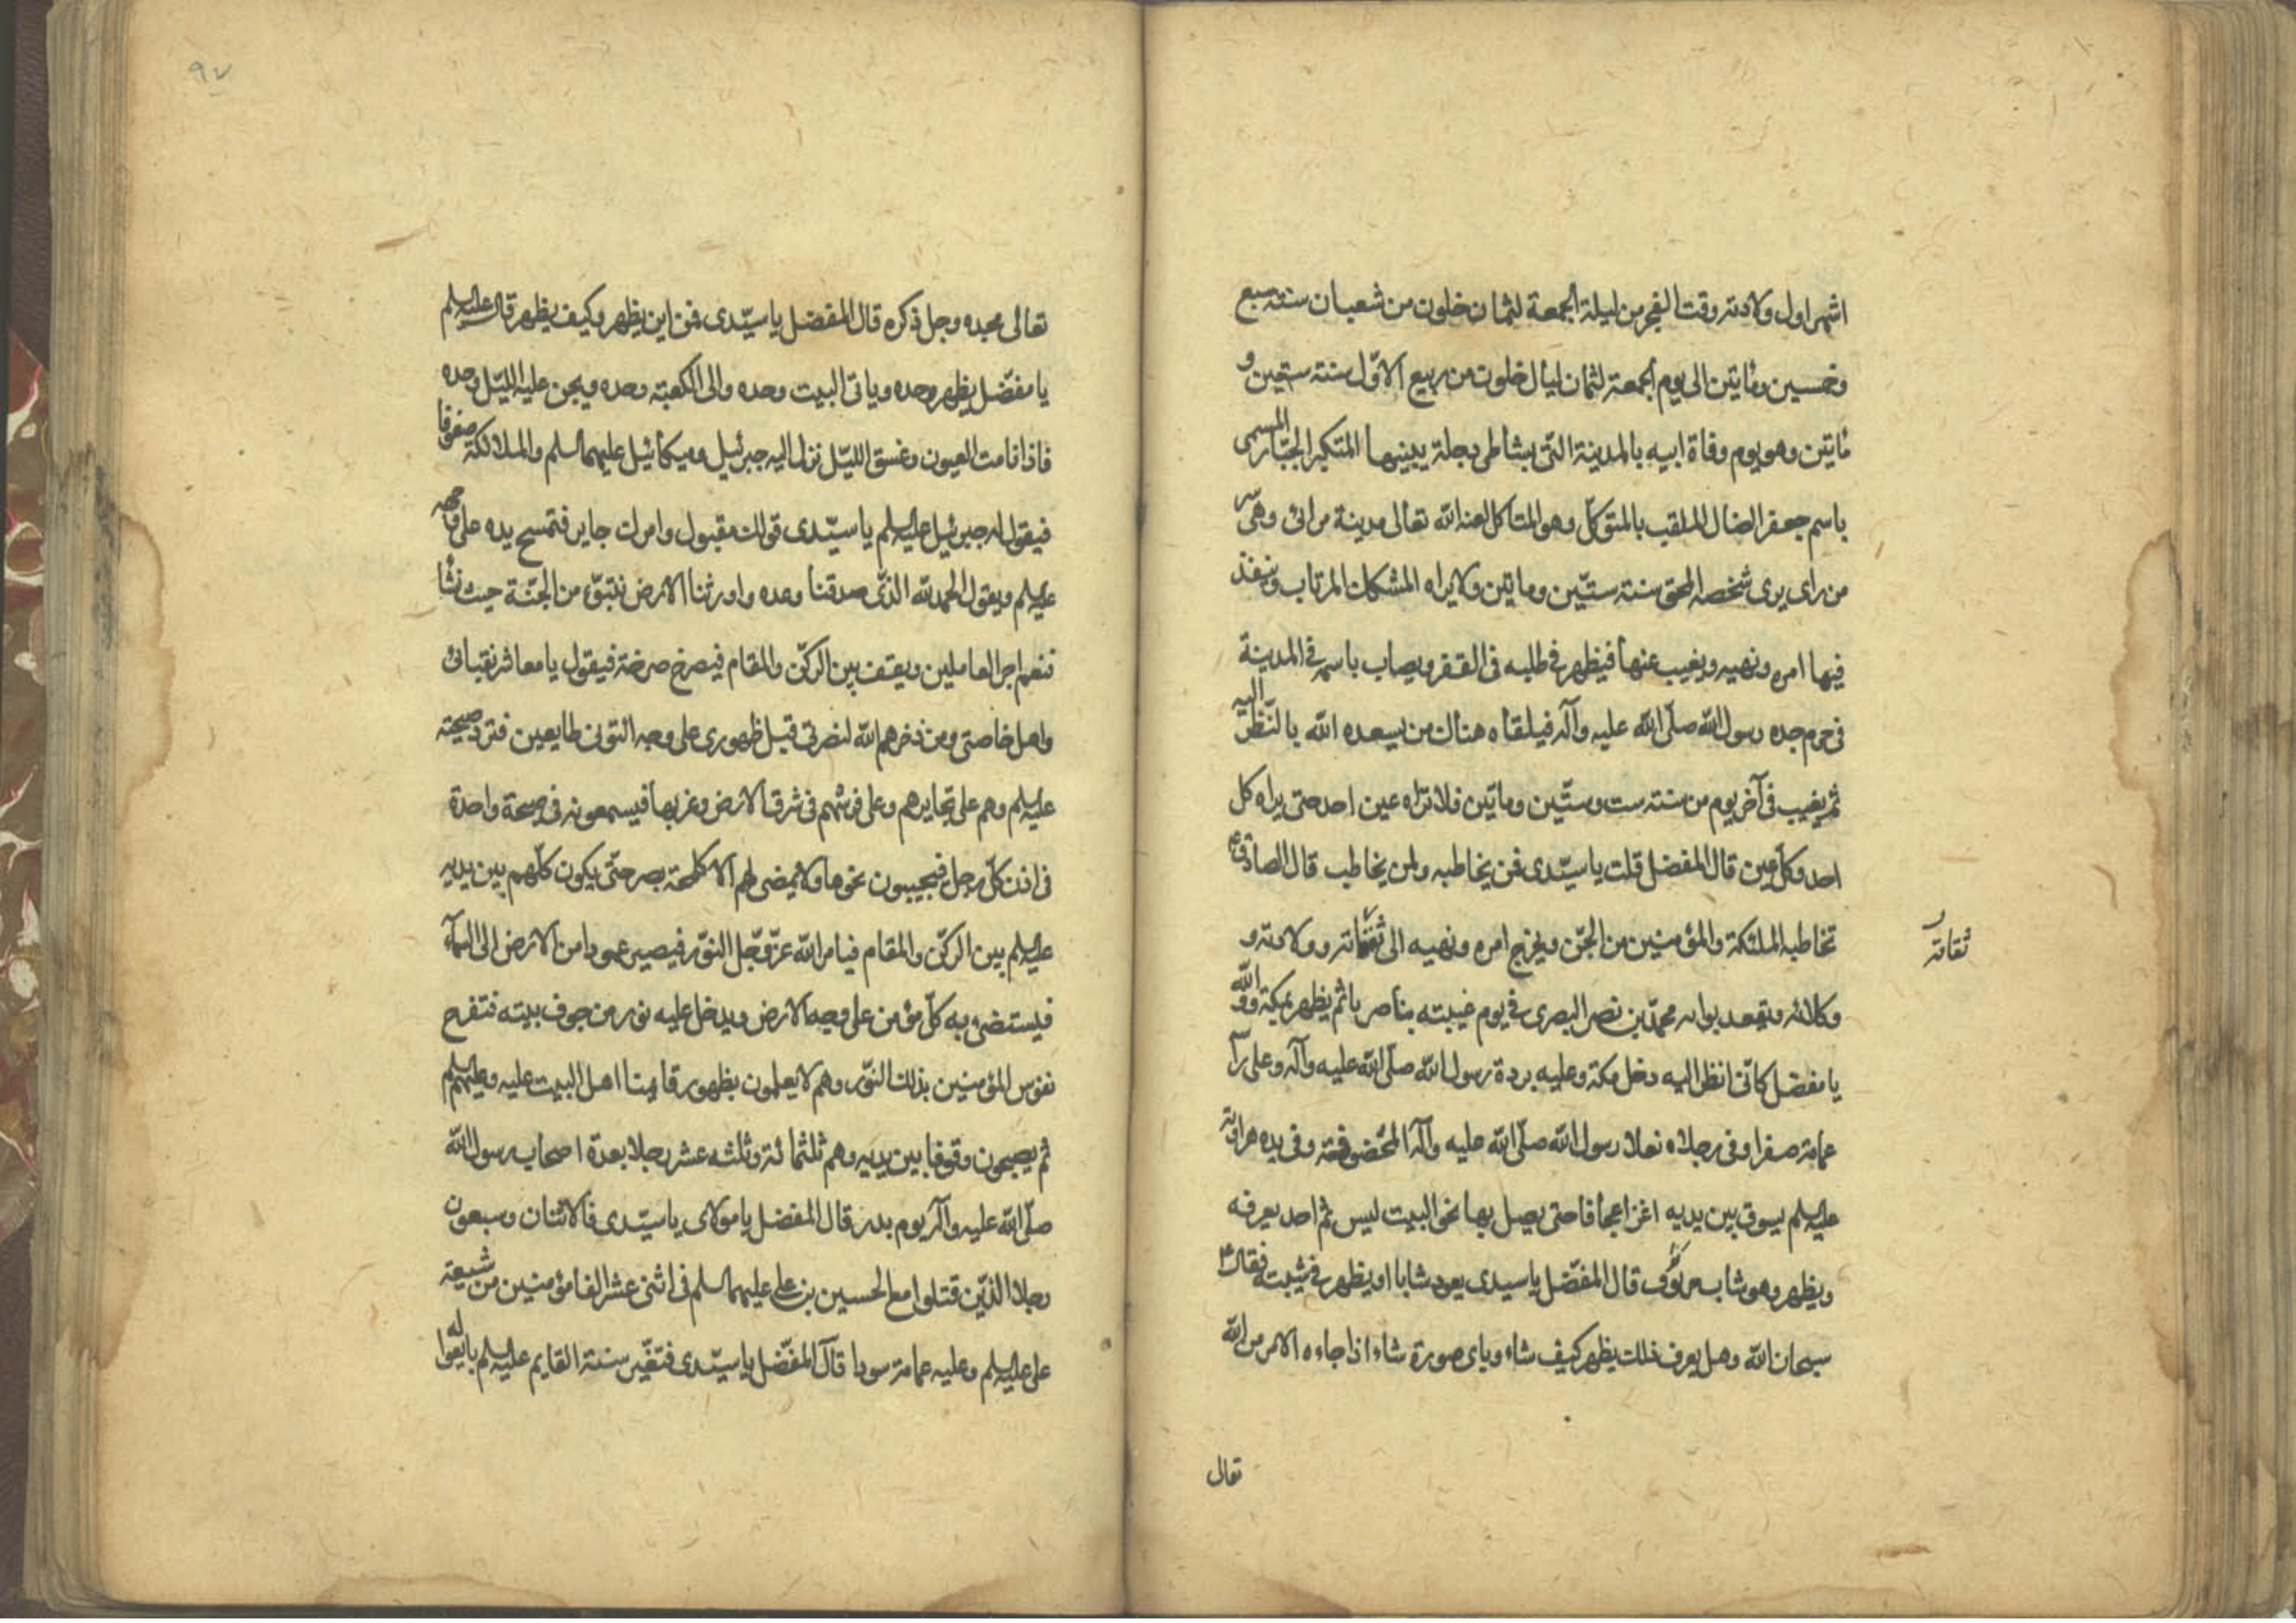 اشهر اول ولادته وقت الفجر من ليلة الجمعة لثمان خلون من شعبان سنة سبع
وخمسين ومائتين الى يوم الجمعة لثمان ليال خلون من ربيع الاوّل سنته ستين و
مأتين وهو يوم وفاة ابيه بالمدينة التى بشاطى دجلة يبنيها المتكبر الجبّار المسمى
باسم جعفر الضال الملقب بالمتوكّل وهو المتاكل لعنه الله تعالى مدينة من رائ وهى
من راى يرى شخصه المحق سنته ستّين وماتين ولا يراه المشكك المرتاب وينفذ
فيها امره ونهيه ويغيب عنها فيظهر فى طلبه فى القفر ويصاب باسمه فى المدينة
فى حرم جده رسول الله صلّى الله عليه وآله فيلقاه هناك من يسعده الله بالنّظر اليه
ثم يغيب فى آخر يوم من سنته ست وستّين وماتين فلا تراه عين احد حتى يراه كل
احد وكل عين قال المفضل قلت يا سيّدى فمن يخاطبه ولمن يخاطب قال الصادق ع
تخاطبه الملئكة والمؤمنين من الجّن ويخرج امره ونهيه الى ثقاته وولادته و
ثقاته
وكلائه ويقعد ببوابه محمّد بن نصر البصرى فى يوم غيبته بناصر يا ثم يظهر بمكة و والله
يا مفضل كانّى انظر اليه دخل مكة وعليه بردة رسول الله صلّى الله عليه وآله وعلى راّ
عمامة صفرا وفى رجلاه نعلا رسول الله صلّى الله عليه وآله المخصوفة وفى يده هراوته
عليه السلم يسوق بين يديه اعنزا عجافا حتى يصل بها نحو البيت ليس ثم احد يعرفه
ويظهر وهو شاب قال المفضّل يا سيدى يعود شابا او يظهر فى شيبته فقال ع
سبحان الله وهل يعرف ذلك يظهر كيف شاء وباى صورة شاء اذا جاءه الامر من الله
تعال
٩٧
تعالى مجده وجل ذكره قال المفضل يا سيّدى فمن اين يظهر وكيف يظهر قال عليه السلم
يا مفضّل يظهر وحده وياتى البيت وحده والى الكعبته وحده ويجن عليه الليّل وحده
فاذا نامت العيون وغسق الليّل نزل اليه جبرئيل وميكائيل عليهما السلم والملائكة صفوفا
فيقول له جبرئيل عليه السلم يا سيّدى قولك مقبول وامرك جايز فتمسح يده على وجهه
عليه السلم ويقول الحمد لله الذّى صدقنا وعده واورثنا الارض نتبوّء من الجنّة حيث نشأ
فنعم اجر العاملين ويقف بين الركّن والمقام فيصرخ صرخة فيقول يا معاشر نقبائى
واهل خاصتى ومن ذخرهم الله لنصرتى قبل ظهورى على وجه ائتونى طايعين فترد صيحته
عليه السلم وهم على تجايرهم وعلى فرشهم فى شرق الارض وغربها فيسمعونه فى صيحة واحدة
فى اذن كلّ رجل فيجيبون نحوها ولا يمضى لهم الا كلمحة بصر حتّى يكون كلّهم بين يديه
عليه السلم بين الركّن والمقام فيامر الله عزّ وجّل النوّر فيصير عمودا من الارض الى السمآء
فيستضئ به كلّ مؤمن على وجه الارض ويدخل عليه نور من جوف بيته فتفرح
نفوس المؤمنين بذلك النوّر وهم لا يعلمون بظهور قايمنا اهل البيت عليه وعليهم السلم
ثم يصبحون وقوفا بين يديه وهم ثلثمائة وثلثه عشر رجلا بعدة اصحاب رسول الله
صلّى الله عليه وآله يوم بدر قال المفضل يا مولاى يا سيّدى فالاثنان وسبعون
رجلا الذيّن قتلوا مع الحسين بن على عليهما السلم فى اثنى عشر الفا مؤمنين من شيعة
على عليه السلم وعليه عمامة سودا قآل المفضّل يا سيّدى فتغيّر سنته القايم عليه السلم بايعوا له